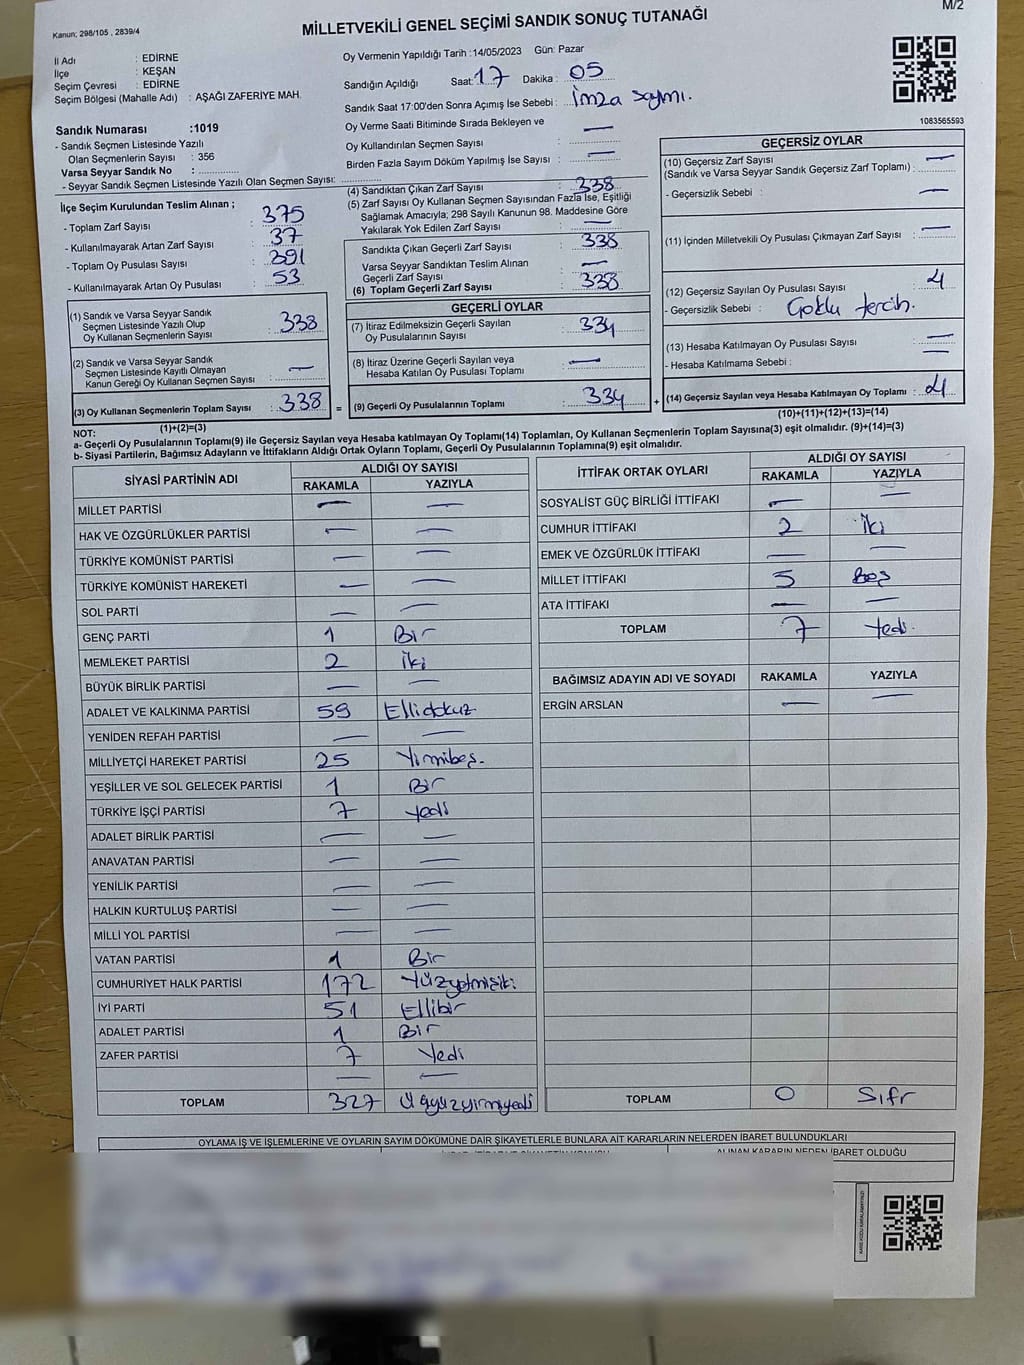 M/2
Kanun; 298/105 , 2839/4
MİLLETVEKİLİ GENEL SEÇİMİ SANDIK SONUÇ TUTANAĞI
İl Adı : EDİRNE
İlçe : KEŞAN
Seçim Çevresi : EDİRNE
Seçim Bölgesi (Mahalle Adı) : AŞAĞI ZAFERİYE MAH.
Oy Vermenin Yapıldığı Tarih :14/05/2023 Gün: Pazar
Sandığın Açıldığı Saat: 17 Dakika : 05
Sandık Saat 17:00'den Sonra Açımış İse Sebebi : İmza sayımı.
Oy Verme Saati Bitiminde Sırada Bekleyen ve
Oy Kullandırılan Seçmen Sayısı : —
Birden Fazla Sayım Döküm Yapılmış İse Sayısı : —
1083565593
Sandık Numarası :1019
- Sandık Seçmen Listesinde Yazılı
Olan Seçmenlerin Sayısı : 356
Varsa Seyyar Sandık No :
- Seyyar Sandık Seçmen Listesinde Yazılı Olan Seçmen Sayısı:
İlçe Seçim Kurulundan Teslim Alınan ;
- Toplam Zarf Sayısı : 375
- Kullanılmayarak Artan Zarf Sayısı : 37
- Toplam Oy Pusulası Sayısı : 391
- Kullanılmayarak Artan Oy Pusulası : 53
(1) Sandık ve Varsa Seyyar Sandık
Seçmen Listesinde Yazılı Olup
Oy Kullanan Seçmenlerin Sayısı : 338
(2) Sandık ve Varsa Seyyar Sandık
Seçmen Listesinde Kayıtlı Olmayan
Kanun Gereği Oy Kullanan Seçmen Sayısı : —
(3) Oy Kullanan Seçmenlerin Toplam Sayısı : 338 =
(1)+(2)=(3)
(4) Sandıktan Çıkan Zarf Sayısı : 338
(5) Zarf Sayısı Oy Kullanan Seçmen Sayısından Fazla İse, Eşitliği
Sağlamak Amacıyla; 298 Sayılı Kanunun 98. Maddesine Göre
Yakılarak Yok Edilen Zarf Sayısı : —
Sandıkta Çıkan Geçerli Zarf Sayısı : 338
Varsa Seyyar Sandıktan Teslim Alınan
Geçerli Zarf Sayısı : —
(6) Toplam Geçerli Zarf Sayısı : 338
GEÇERLİ OYLAR
(7) İtiraz Edilmeksizin Geçerli Sayılan
Oy Pusulalarının Sayısı : 334
(8) İtiraz Üzerine Geçerli Sayılan veya
Hesaba Katılan Oy Pusulası Toplamı : —
(9) Geçerli Oy Pusulalarının Toplamı : 334 +
GEÇERSİZ OYLAR
(10) Geçersiz Zarf Sayısı
(Sandık ve Varsa Seyyar Sandık Geçersiz Zarf Toplamı) : —
- Geçersizlik Sebebi : —
(11) İçinden Milletvekili Oy Pusulası Çıkmayan Zarf Sayısı : —
(12) Geçersiz Sayılan Oy Pusulası Sayısı : 4
- Geçersizlik Sebebi : Çoklu tercih.
(13) Hesaba Katılmayan Oy Pusulası Sayısı : —
- Hesaba Katılmama Sebebi : —
(14) Geçersiz Sayılan veya Hesaba Katılmayan Oy Toplamı : 4
(10)+(11)+(12)+(13)=(14)
NOT:
a- Geçerli Oy Pusulalarının Toplamı(9) ile Geçersiz Sayılan veya Hesaba katılmayan Oy Toplamı(14) Toplamları, Oy Kullanan Seçmenlerin Toplam Sayısına(3) eşit olmalıdır. (9)+(14)=(3)
b- Siyasi Partilerin, Bağımsız Adayların ve İttifakların Aldığı Ortak Oyların Toplamı, Geçerli Oy Pusulalarının Toplamına(9) eşit olmalıdır.
SİYASİ PARTİNİN ADI ALDIĞI OY SAYISI
RAKAMLA YAZIYLA
MİLLET PARTİSİ — —
HAK VE ÖZGÜRLÜKLER PARTİSİ — —
TÜRKİYE KOMÜNİST PARTİSİ — —
TÜRKİYE KOMÜNİST HAREKETİ — —
SOL PARTİ — —
GENÇ PARTİ 1 Bir
MEMLEKET PARTİSİ 2 İki
BÜYÜK BİRLİK PARTİSİ — —
ADALET VE KALKINMA PARTİSİ 59 Ellidokuz
YENİDEN REFAH PARTİSİ — —
MİLLİYETÇİ HAREKET PARTİSİ 25 Yirmibeş.
YEŞİLLER VE SOL GELECEK PARTİSİ 1 Bir
TÜRKİYE İŞÇİ PARTİSİ 7 Yedi
ADALET BİRLİK PARTİSİ — —
ANAVATAN PARTİSİ — —
YENİLİK PARTİSİ — —
HALKIN KURTULUŞ PARTİSİ — —
MİLLİ YOL PARTİSİ — —
VATAN PARTİSİ 1 Bir
CUMHURİYET HALK PARTİSİ 172 Yüzyetmişiki
İYİ PARTİ 51 Ellibir
ADALET PARTİSİ 1 Bir
ZAFER PARTİSİ 7 Yedi
— —
TOPLAM 327 Üçyüzyirmiyedi
İTTİFAK ORTAK OYLARI ALDIĞI OY SAYISI
RAKAMLA YAZIYLA
SOSYALİST GÜÇ BİRLİĞİ İTTİFAKI — —
CUMHUR İTTİFAKI 2 İki
EMEK VE ÖZGÜRLÜK İTTİFAKI — —
MİLLET İTTİFAKI 5 Beş
ATA İTTİFAKI — —
TOPLAM 7 Yedi.
BAĞIMSIZ ADAYIN ADI VE SOYADI RAKAMLA YAZIYLA
ERGİN ARSLAN — —
TOPLAM 0 Sıfır
OYLAMA İŞ VE İŞLEMLERİNE VE OYLARIN SAYIM DÖKÜMÜNE DAİR ŞİKAYETLERLE BUNLARA AİT KARARLARIN NELERDEN İBARET BULUNDUKLARI
ALINAN KARARIN NEDEN İBARET OLDUĞU